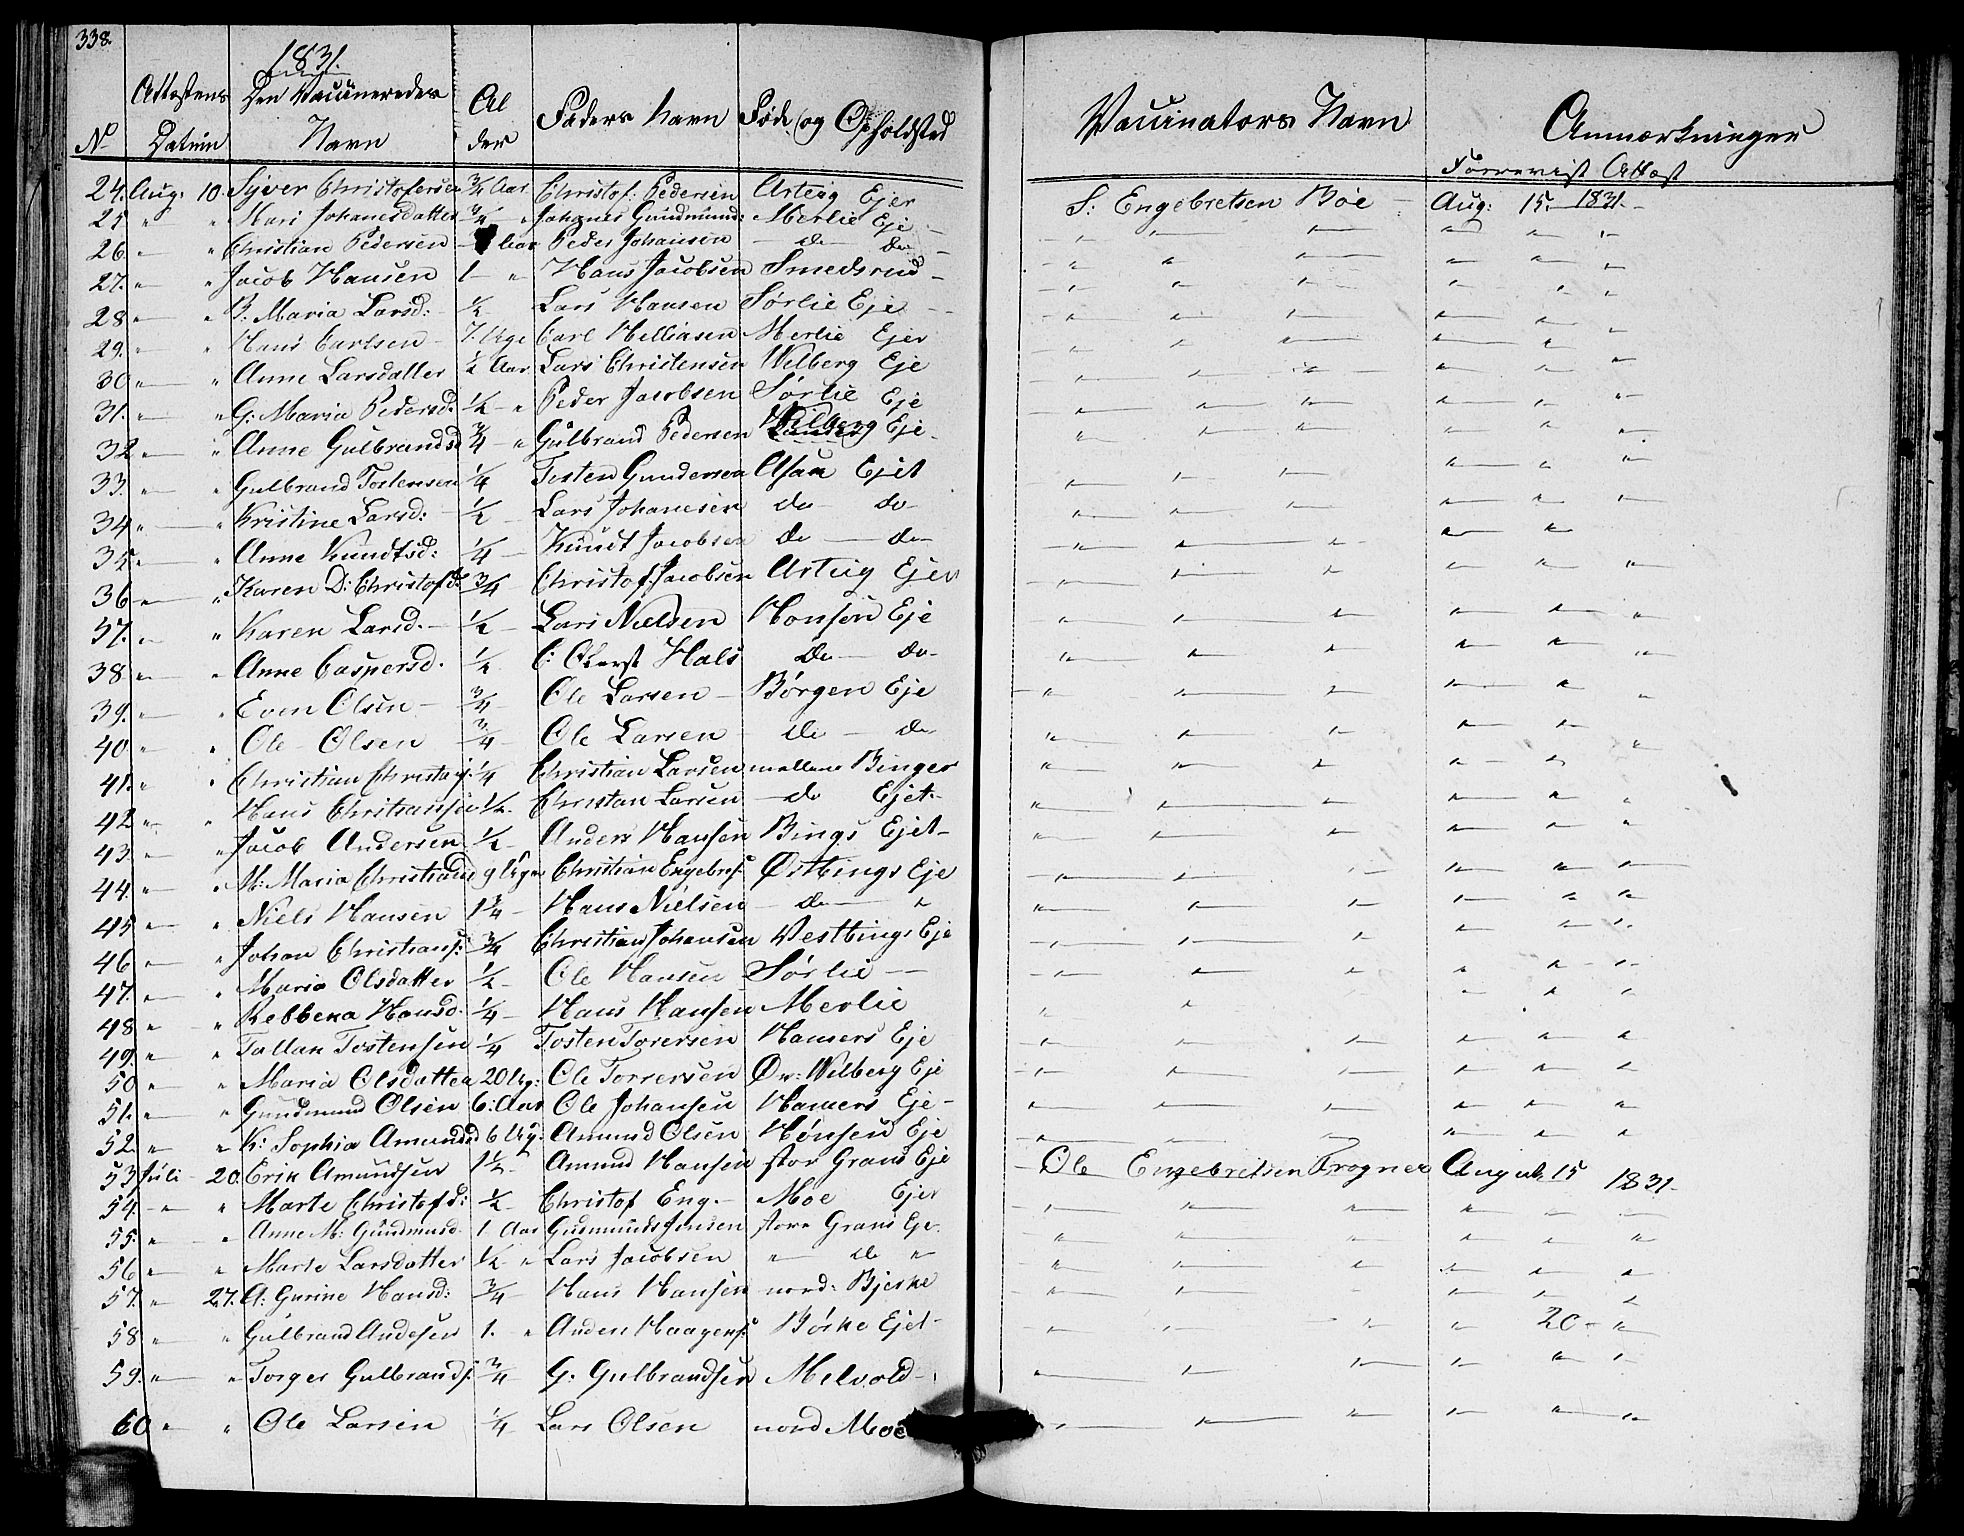 338.
1831.
No Attestens Datum Den Vaccineredes Navn Al der Faders Navn Føde og Opholdsted Vaccinators Navn Anmærkninger
Foreevist Attest
24. Aug: 10. Syver Christofersen 3/4 Aar Christof: Pedersen Arteig Ejer S: Engebretsen Bøe – Aug: 15. 1831.
25 " " Mari Johanesdatter 3/4 " Johanes Gundmund: Merlie Eje
26. " " Christian Pedersen Aar Peder Johansen – do do
27. " " Jacob Hansen 1 – " Hans Jacobsen Smedsrud –
28 " " B: Maria Larsd: 1/2 Lars Hansen Sørlie Eje
29. " " Hans Carlsen – 7. Uge Carl Helliasen Merlie Ejer
30 " " Anne Larsdatter 1/2 Aar Lars Christensen Wilberg Eje
31. " " G: Maria Pedersd: 1/2 – " Peder Jacobsen Sørlie Eje
32 " " Anne Gulbrandsd 3/4 – " Gulbrand Pedersen Wilberg Eje
33. " " Gulbrand Tostensen 1/4 Tosten Gundersen Asak Ejet
34 " " Kristine Larsd: 1/2 – Lars Johanesen do do
35 " " Anne Knudtsd: 1/4 – Knudt Jacobsen do – do
36 " " Karen D: Christofd: 3/4 Christof: Jacobsen Arteig Ejer
37. " " Karen Larsd. – 1/2 – Lars Nielsen Honsen Eje
38 " " Anne Caspersd. 1/2 C: Oberst Hals do – do
39. " " Even Olsen – 3/4 Ole Larsen – Børgen Eje
40 " " Ole Olsen 3/4 – Ole Larsen do – do
41. " " Christian Christians: 1/4 Christian Larsen mellem Binger
42 " " Hans Christiansen 1/2. Christian Larsen – do Ejet.
43. " " Jacob Andersen 1/2 – Anders Hansen Bings Ejet –
44. " " M: Maria Christiansd 9 Uger Christian Engebres: Østbings Eje
45 " " Niels Hansen 1 1/4 – Hans Nielsen – do – "
46 " " Johan Christians: 3/4 Christian Johansen Vestbings Eje
47. " " Maria Olsdatter 1/2 – Ole Hansen Sørlie –
48 " " Rebbeka Hansd. 1/4 – Hans Hansen Merlie
49. " " Tallak Tostensen 1/4 Tosten Torersen Hamers Eje
50 " " Maria Olsdatter 20 Ug: Ole Torrersen Øv: Wilberg Eje
51. " " Gundmund Olsen 6: Aar Ole Johansen Hamers Eje –
52. " " K: Sophia Amundsd 6 Ug: Amund Olsen Hønsen Eje
53 Juli – 20. Erik Amundsen 1 1/2 – Amund Hansen stor Grans Eje – Ole Engebretsen Frogner August 15 1831.
54. " " Marte Christofd: 1/2 – Christof Eng. – Moe Ejer
55. " " Anne M: Gundmusd. 1. Aar Gudmund Jensen store Grans Eje.
56 " " Marte Larsdatter 1/2 " Lars Jacobsen " do "
57. " 27. A: Gurine Hansd: 3/4 – Hans Hansen nord: Bjerke
58 " " Gulbrand Andesen 1. " Anden Haagens: Børke Ejet – 20 –
59. " " Torger Gulbrands: 3/4 G. Gulbrandsen Melvold –
60 " " Ole Larsen 1/4 Lars Olsen nord Moe